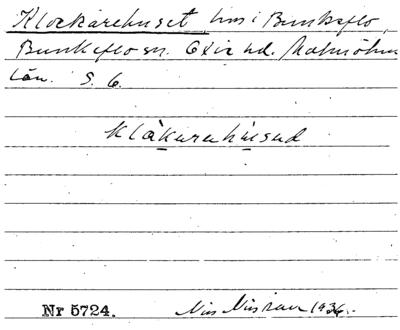 Klockarehuset, hus i Bunkeflo,
Bunkeflo sn. Oxie hd. Malmöhus
län. S. 6.
klåkarahusad
Nr 5724.
1936.